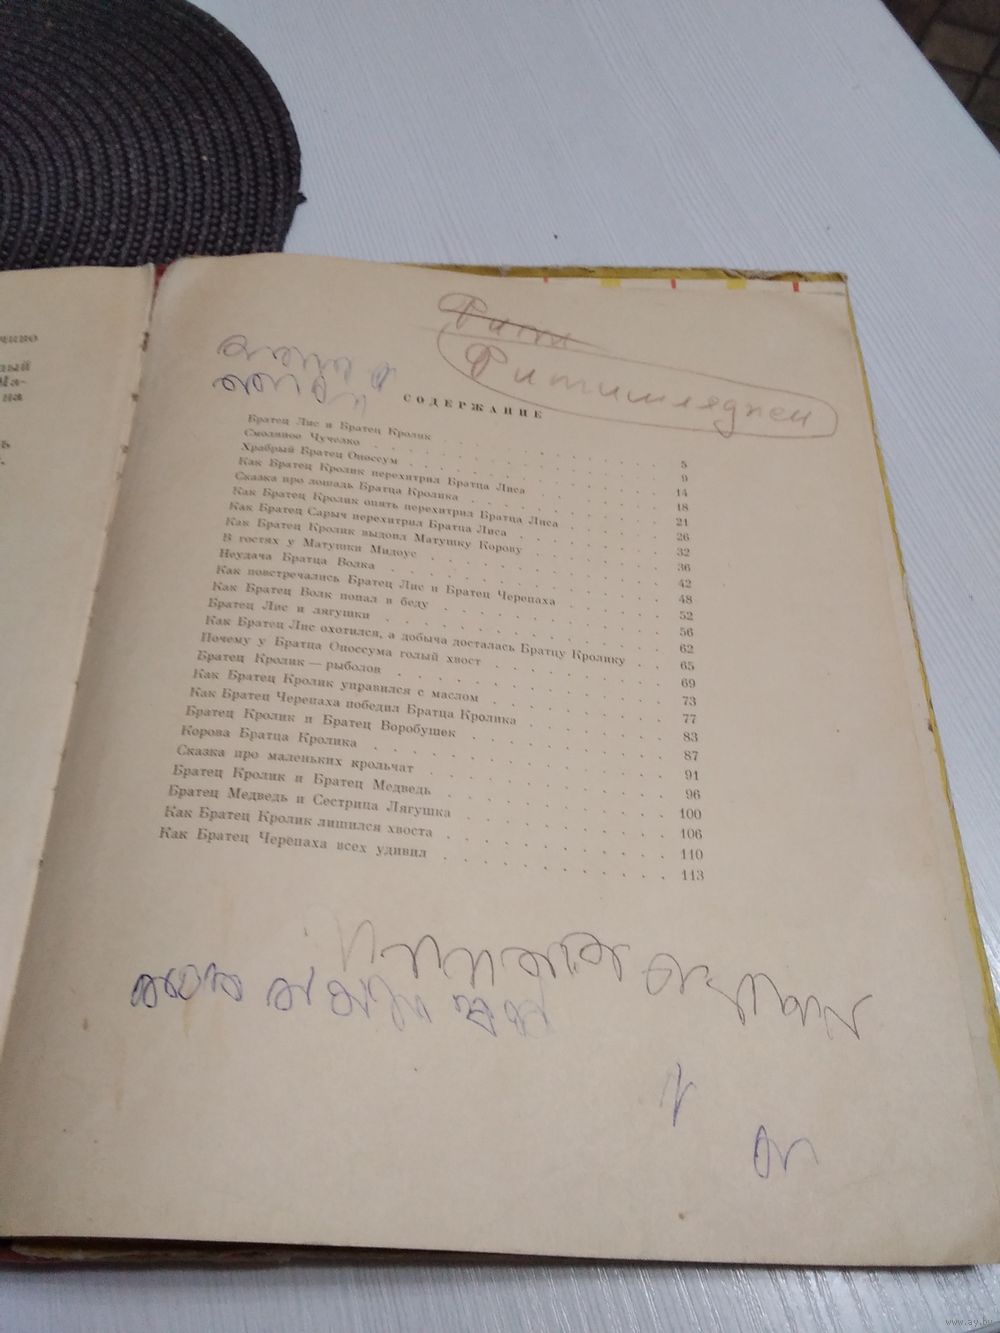 чиво
ный
Ма-
на
ь
Фити
Фитимляджен
СОДЕРЖАНИЕ
Братец Лис и Братец Кролик . . . 5
Смоляное Чучелко . . . 9
Храбрый Братец Опоссум . . . 14
Как Братец Кролик перехитрил Братца Лиса . . . 18
Сказка про лошадь Братца Кролика . . . 21
Как Братец Кролик опять перехитрил Братца Лиса . . . 26
Как Братец Сарыч перехитрил Братца Лиса . . . 32
Как Братец Кролик выдоил Матушку Корову . . . 36
В гостях у Матушки Мидоус . . . 42
Неудача Братца Волка . . . 48
Как повстречались Братец Лис и Братец Черепаха . . . 52
Как Братец Волк попал в беду . . . 56
Братец Лис и лягушки . . . 62
Как Братец Лис охотился, а добыча досталась Братцу Кролику . . 65
Почему у Братца Опоссума голый хвост . . . 69
Братец Кролик — рыболов . . . 73
Как Братец Кролик управился с маслом . . . 77
Как Братец Черепаха победил Братца Кролика . . . 83
Братец Кролик и Братец Воробушек . . . 87
Корова Братца Кролика . . . 91
Сказка про маленьких крольчат . . . 96
Братец Кролик и Братец Медведь . . . 100
Братец Медведь и Сестрица Лягушка . . . 106
Как Братец Кролик лишился хвоста . . . 110
Как Братец Черепаха всех удивил . . . 113
www.ay.by